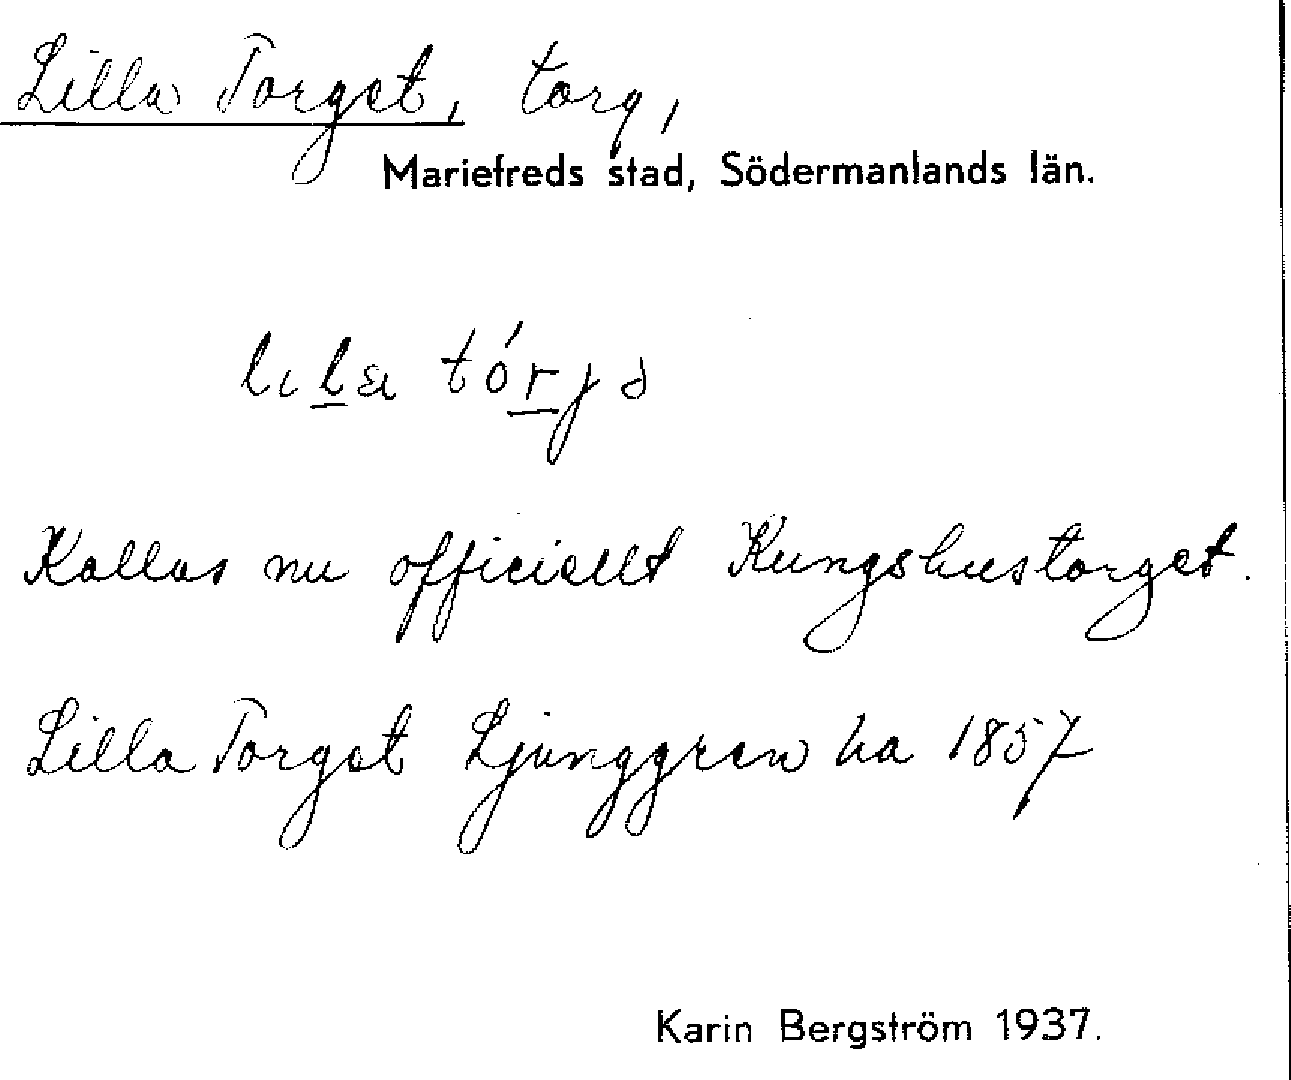 Lilla Torget, torg,
Mariefreds stad, Södermanlands län.
Kallas nu officiellt Kungshustorget.
Lilla Torget Ljunggren ha 1857
Karin Bergström 1937.